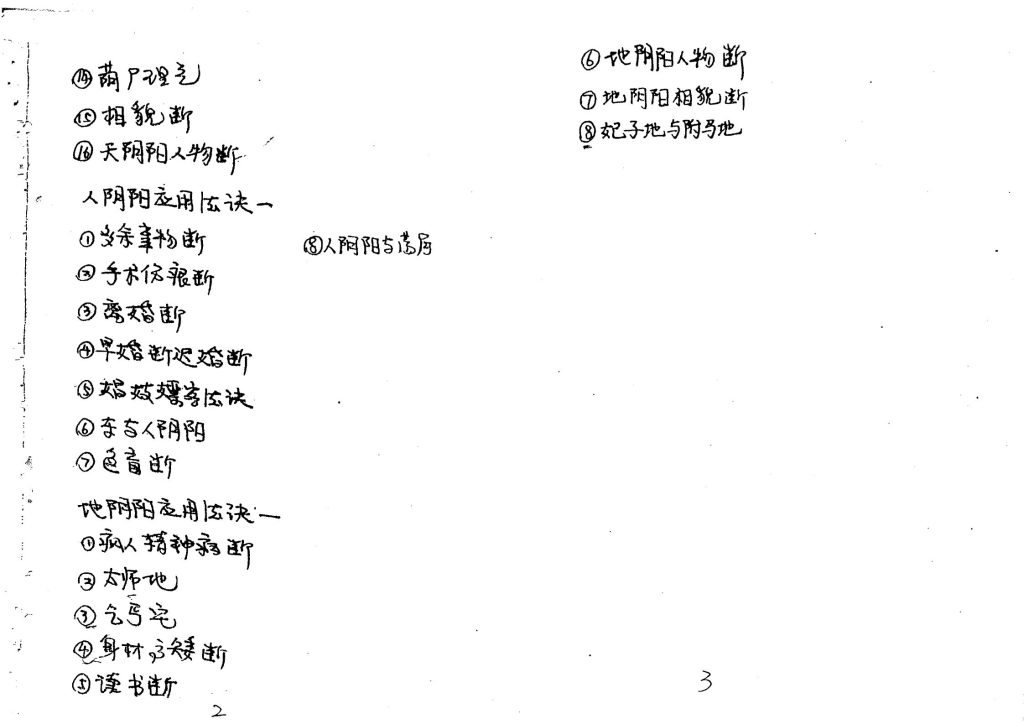 ⑭葫尸理气
⑮相貌断
⑯天阴阳人物断
人阴阳应用法诀一
①事物断
②手术伤痕断
③离婚断
④早婚断迟婚断
⑤娼妓嫖客法诀
⑥车与人阴阳
⑦色盲断
⑧人阴阳与房
地阴阳应用法诀一
①病人精神病断
②太师地
③乞丐宅
④身材高矮断
⑤读书断
2
⑥地阴阳人物断
⑦地阴阳相貌断
⑧妃子地与附马地
3